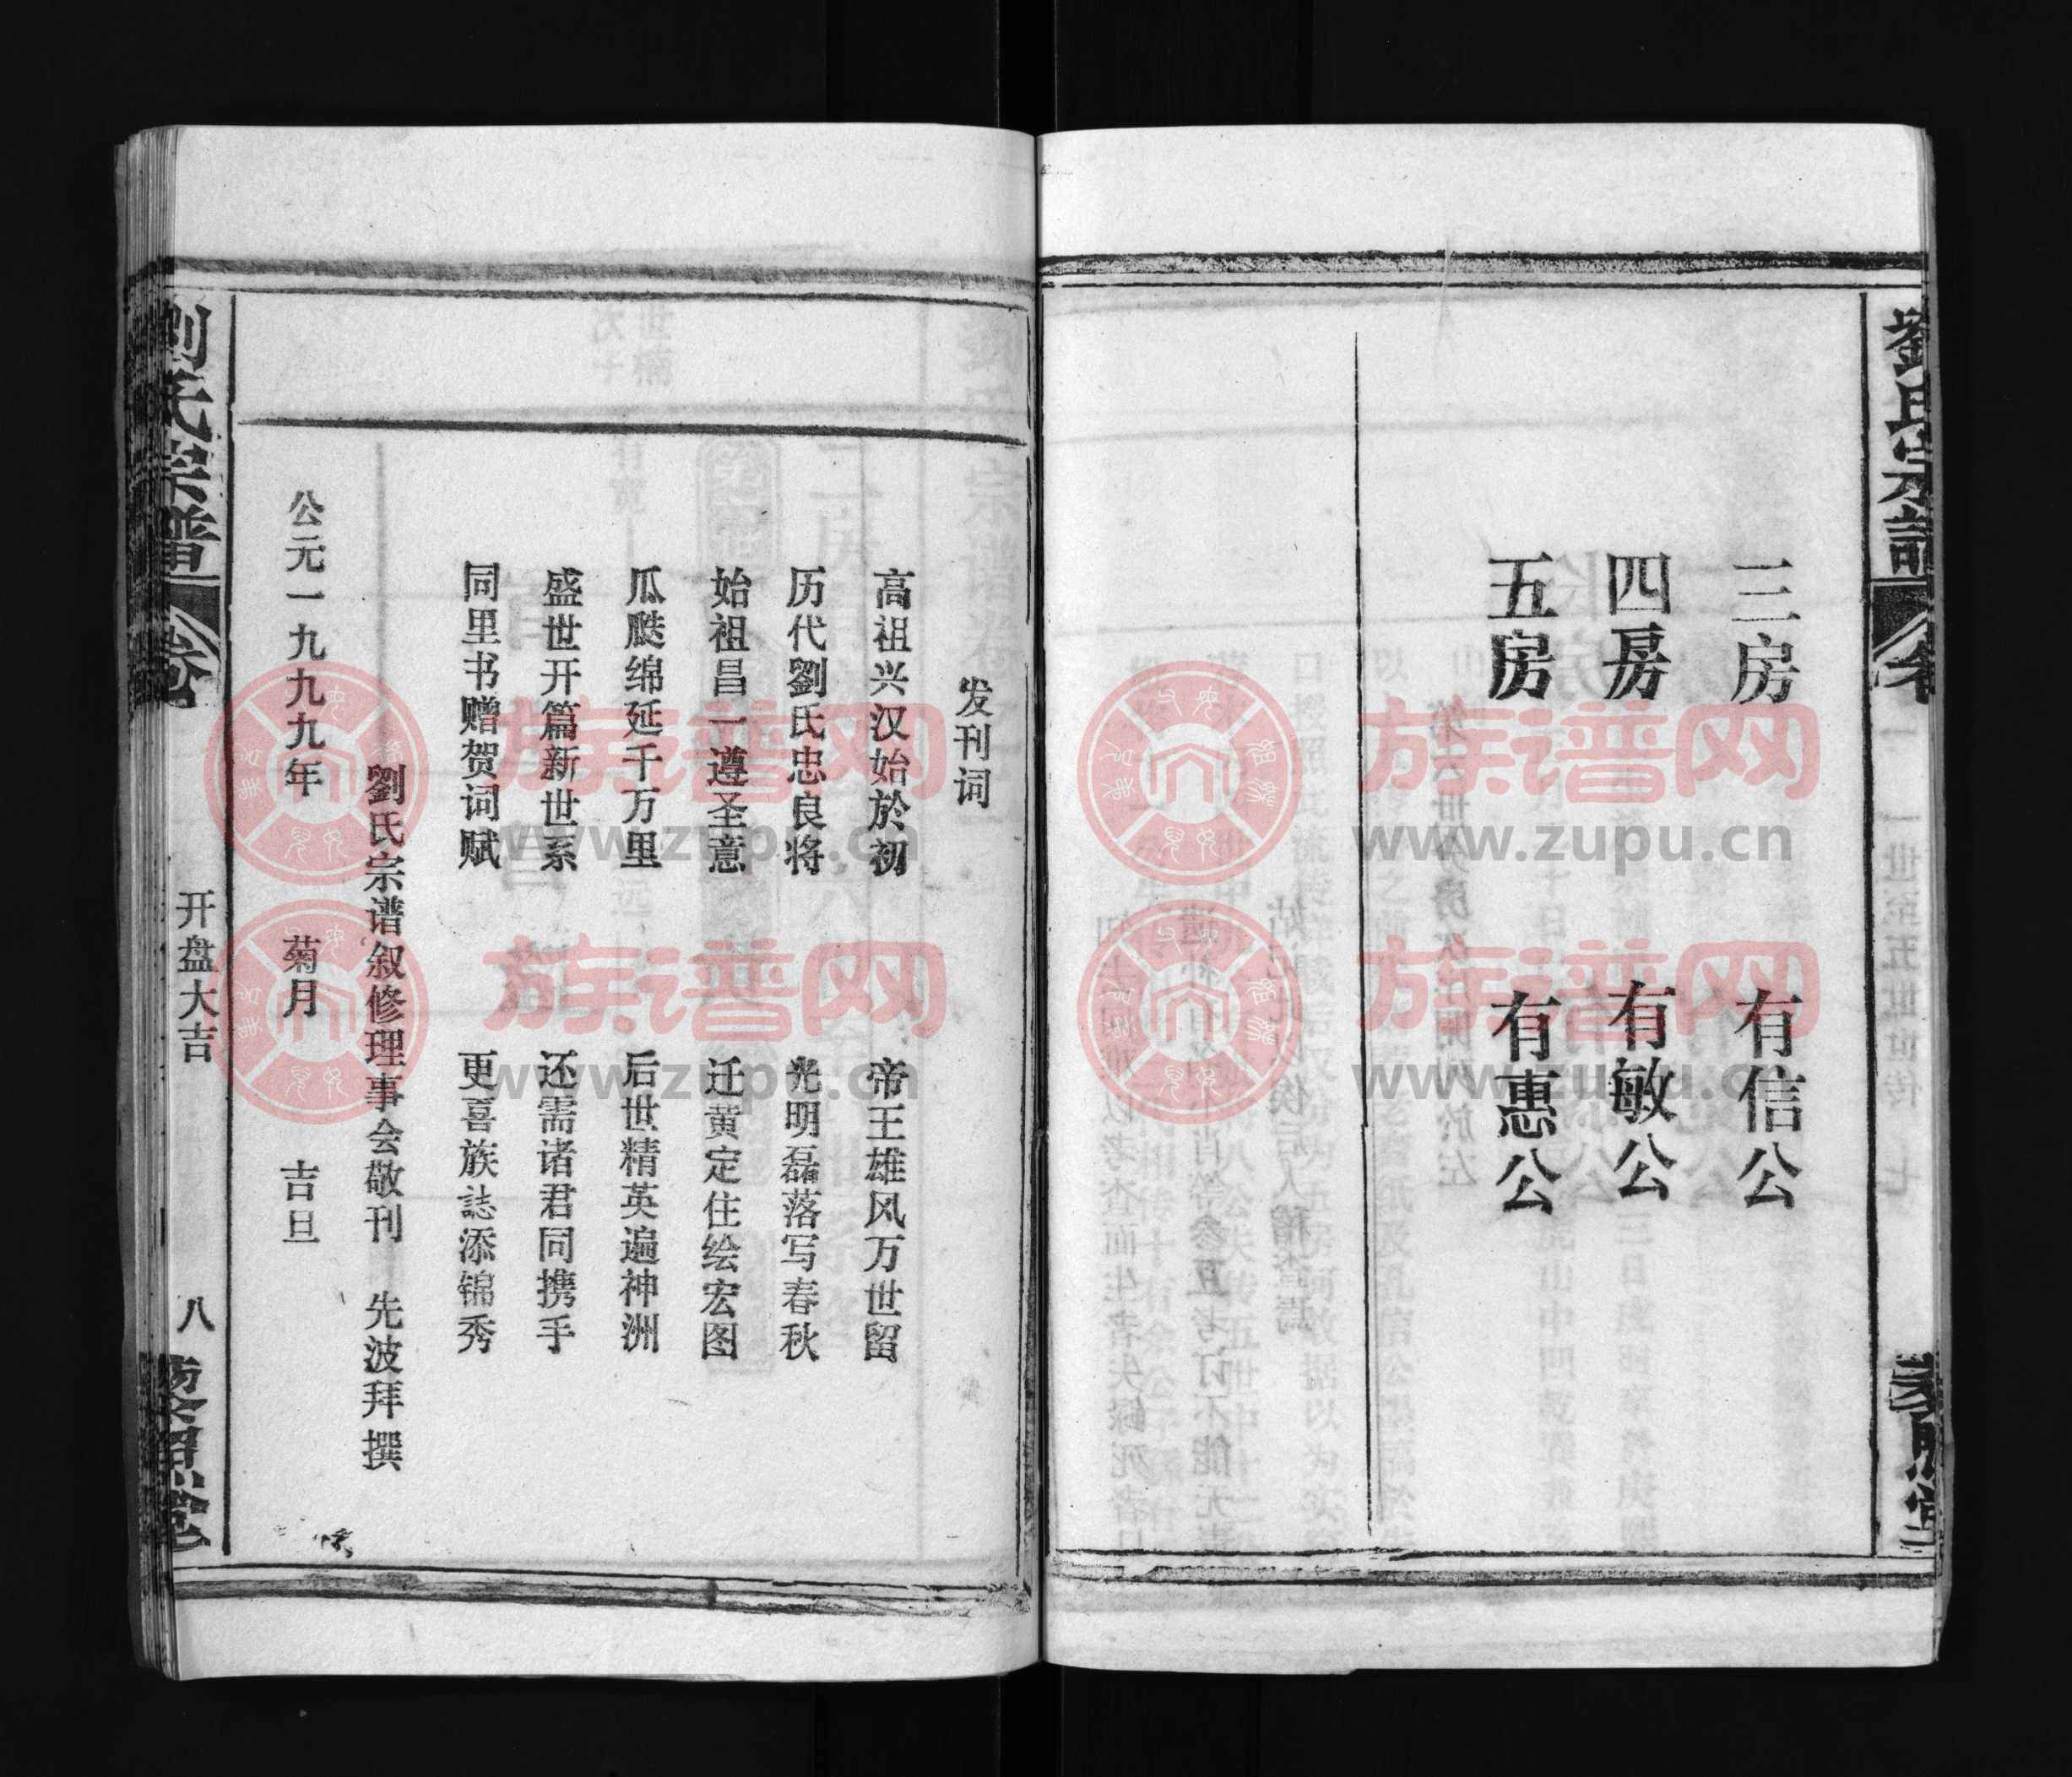 劉氏宗譜
三房 有信公
四房 有敏公
五房 有惠公
发刊词
高祖兴汉始於初 帝王雄风万世留
历代劉氏忠良将 光明磊落写春秋
始祖昌一遵圣意 迁黄定住绘宏图
瓜瓞绵延千万里 后世精英遍神洲
盛世开篇新世系 还需诸君同携手
同里书赠贺词赋 更喜族誌添锦秀
劉氏宗谱叙修理事会敬刊 先波拜撰
公元一九九九年 菊月 吉旦
劉氏宗譜 卷 开盘大吉 八
族谱网
www.zupu.cn
族谱网
www.zupu.cn
族谱网
www.zupu.cn
族谱网
www.zupu.cn